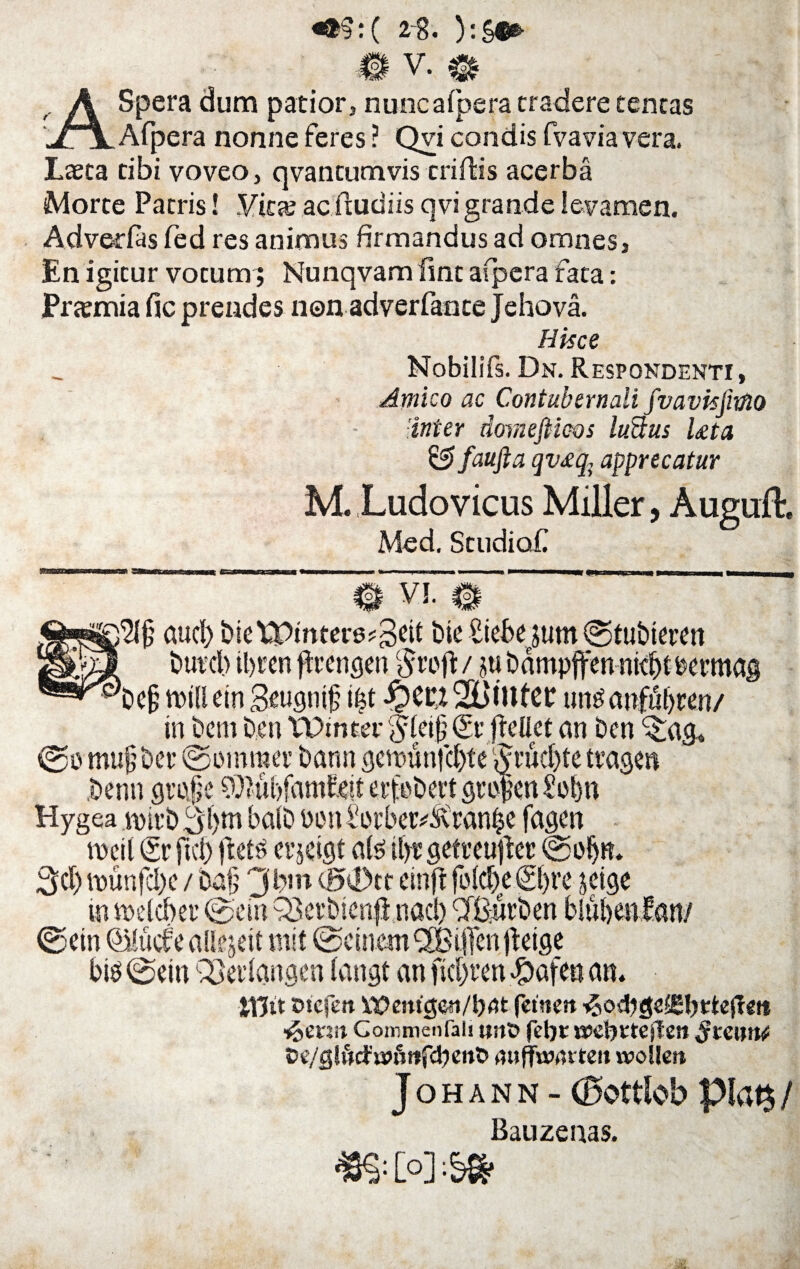 §:( 28. ):§
V.
ASpera dum patior, nunc aſpera tradere tentas
Aſpera nonne feres? Qvi condis ſvavia vera.
Læta tibi voveo, qvantumvis triſtis acerbâ
Morte Patris! Vitæ ac ſtudiis qvi grande levamen.
Adverſas ſed res animus firmandus ad omnes,
En igitur votum; Nunqvam ſint aſpera fata:
Præmia ſic prendes non adverſante Jehovâ.
Hisce
Nobiliſs. Dn. Respondenti,
Amico ac Contubernali ſvavisſimo
inter domeſticos luctus læta
& fauſta qvæq; apprecatur
M. Ludovicus Miller, Auguſt.
Med. Studioſ.
VI.
DAß auch die Winters-Zeit die Liebe zum Studieren
durch ihren ſtrengen Froſt / zu dämpffen nicht vermag
Deß will ein Zeugniß itzt Herz Winter uns anführen/
in dem den Winter Fleiß Er ſtellet an den Tag.
So muß der Sommer dann gewünſchte Früchte tragen
denn große Mühſamkeit erfodert großen Lohn
Hygea wird Ihm bald von Lorber-Krantze ſagen
weil Er ſich ſtets erzeigt als ihr getreuſter Sohn.
Ich wünſche / daß Ihm GOtt einſt ſolche Ehre zeige
in welcher Sein Verdienſt nach Würden blühen kan/
Sein Glücke allezeit mit Seinem Wiſſen ſteige
bis Sein Verlangen langt an ſichren Hafen an.
Mit dieſen Wenigen/hat ſeinen HochgeEhrteſten
Herrn Commenſali und ſehr wehrteſten Freun-
de/glückwünſchend auffwarten wollen
Johann - Gottlob Platz/
Bauzenas.
§:[o]:§